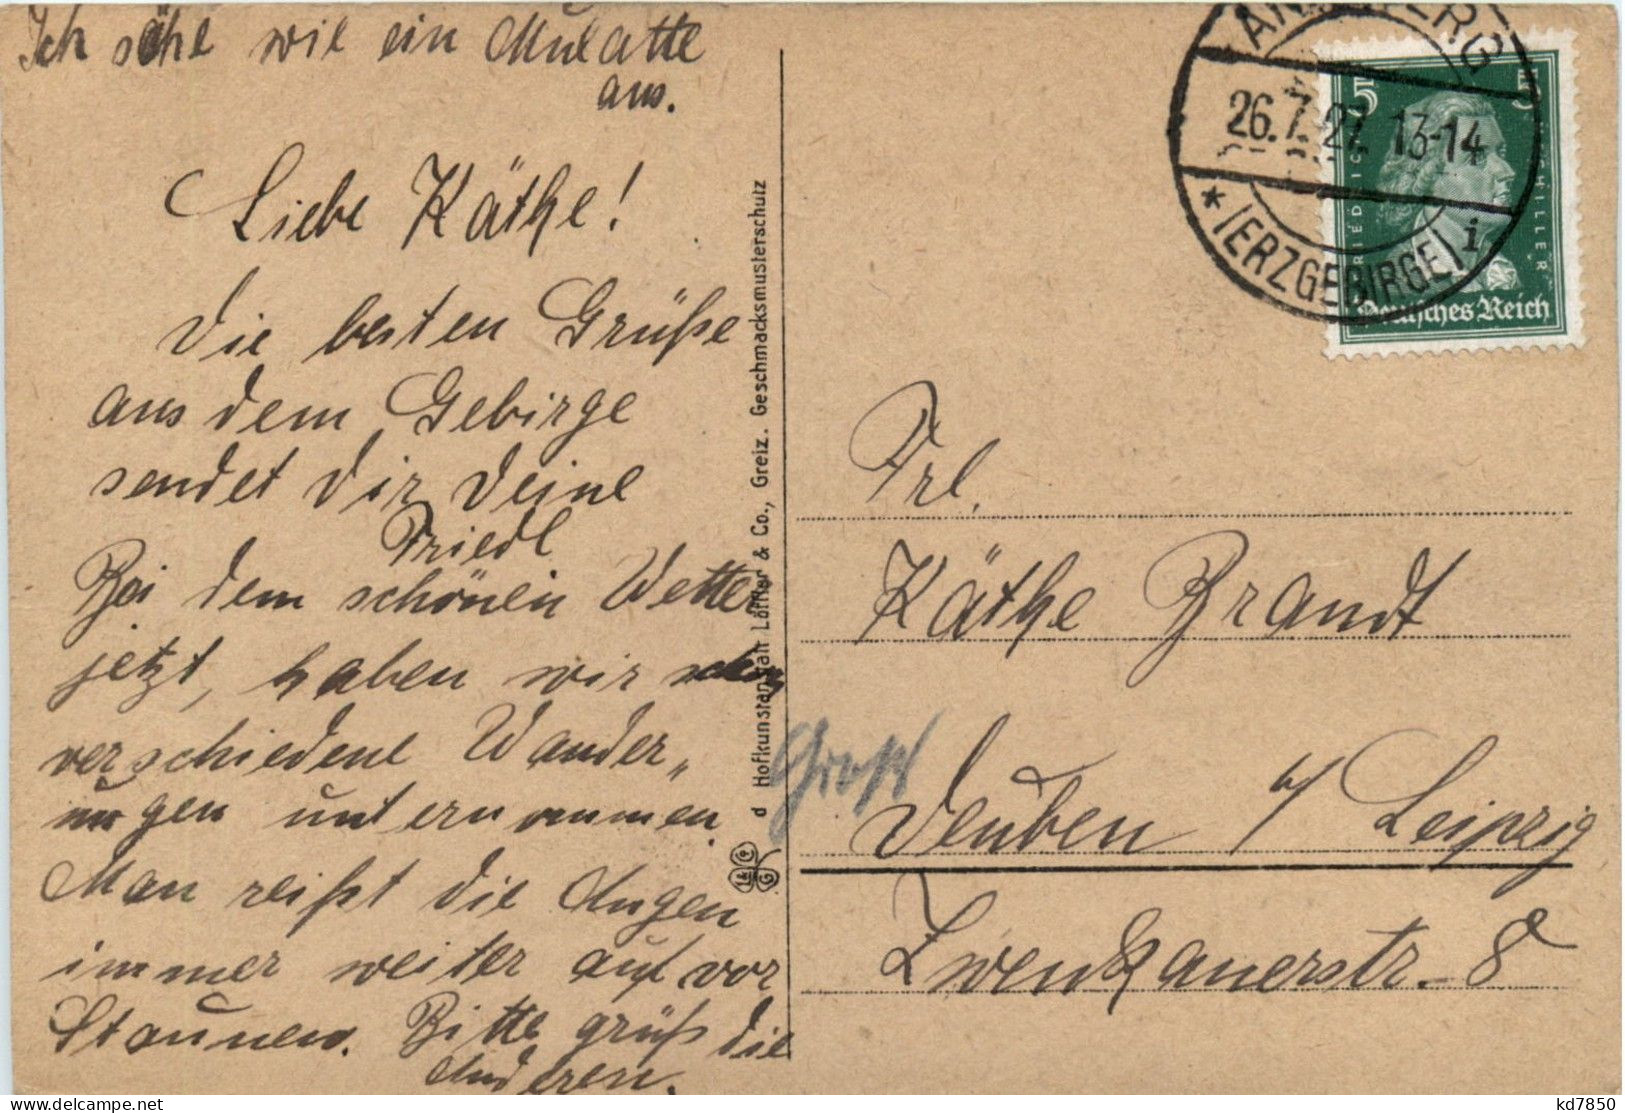 Ich sähe wie ein Mulatte
aus.
Liebe Käthe!
Die besten Grüße
aus dem Gebirge
sendet Dir Deine
Friedl
Bei dem schönen Wetter
jetzt, haben wir schon
verschiedene Wander„
ungen unternommen.
Man reißt die Augen
immer weiter auf vor
Staunen. Bitte grüß die
Anderen.
d Hofkunstanstalt Löffler & Co., Greiz. Geschmacksmusterschutz
26.7.27. 13-14
* (ERZGEBIRGE) i
5 5
FRIEDRICH VON SCHILLER
Deutsches Reich
Frl.
Käthe Brandt
Groß
Deuben b/ Leipzig
Zwenkauerstr. 8
delcampe.net
kd7850